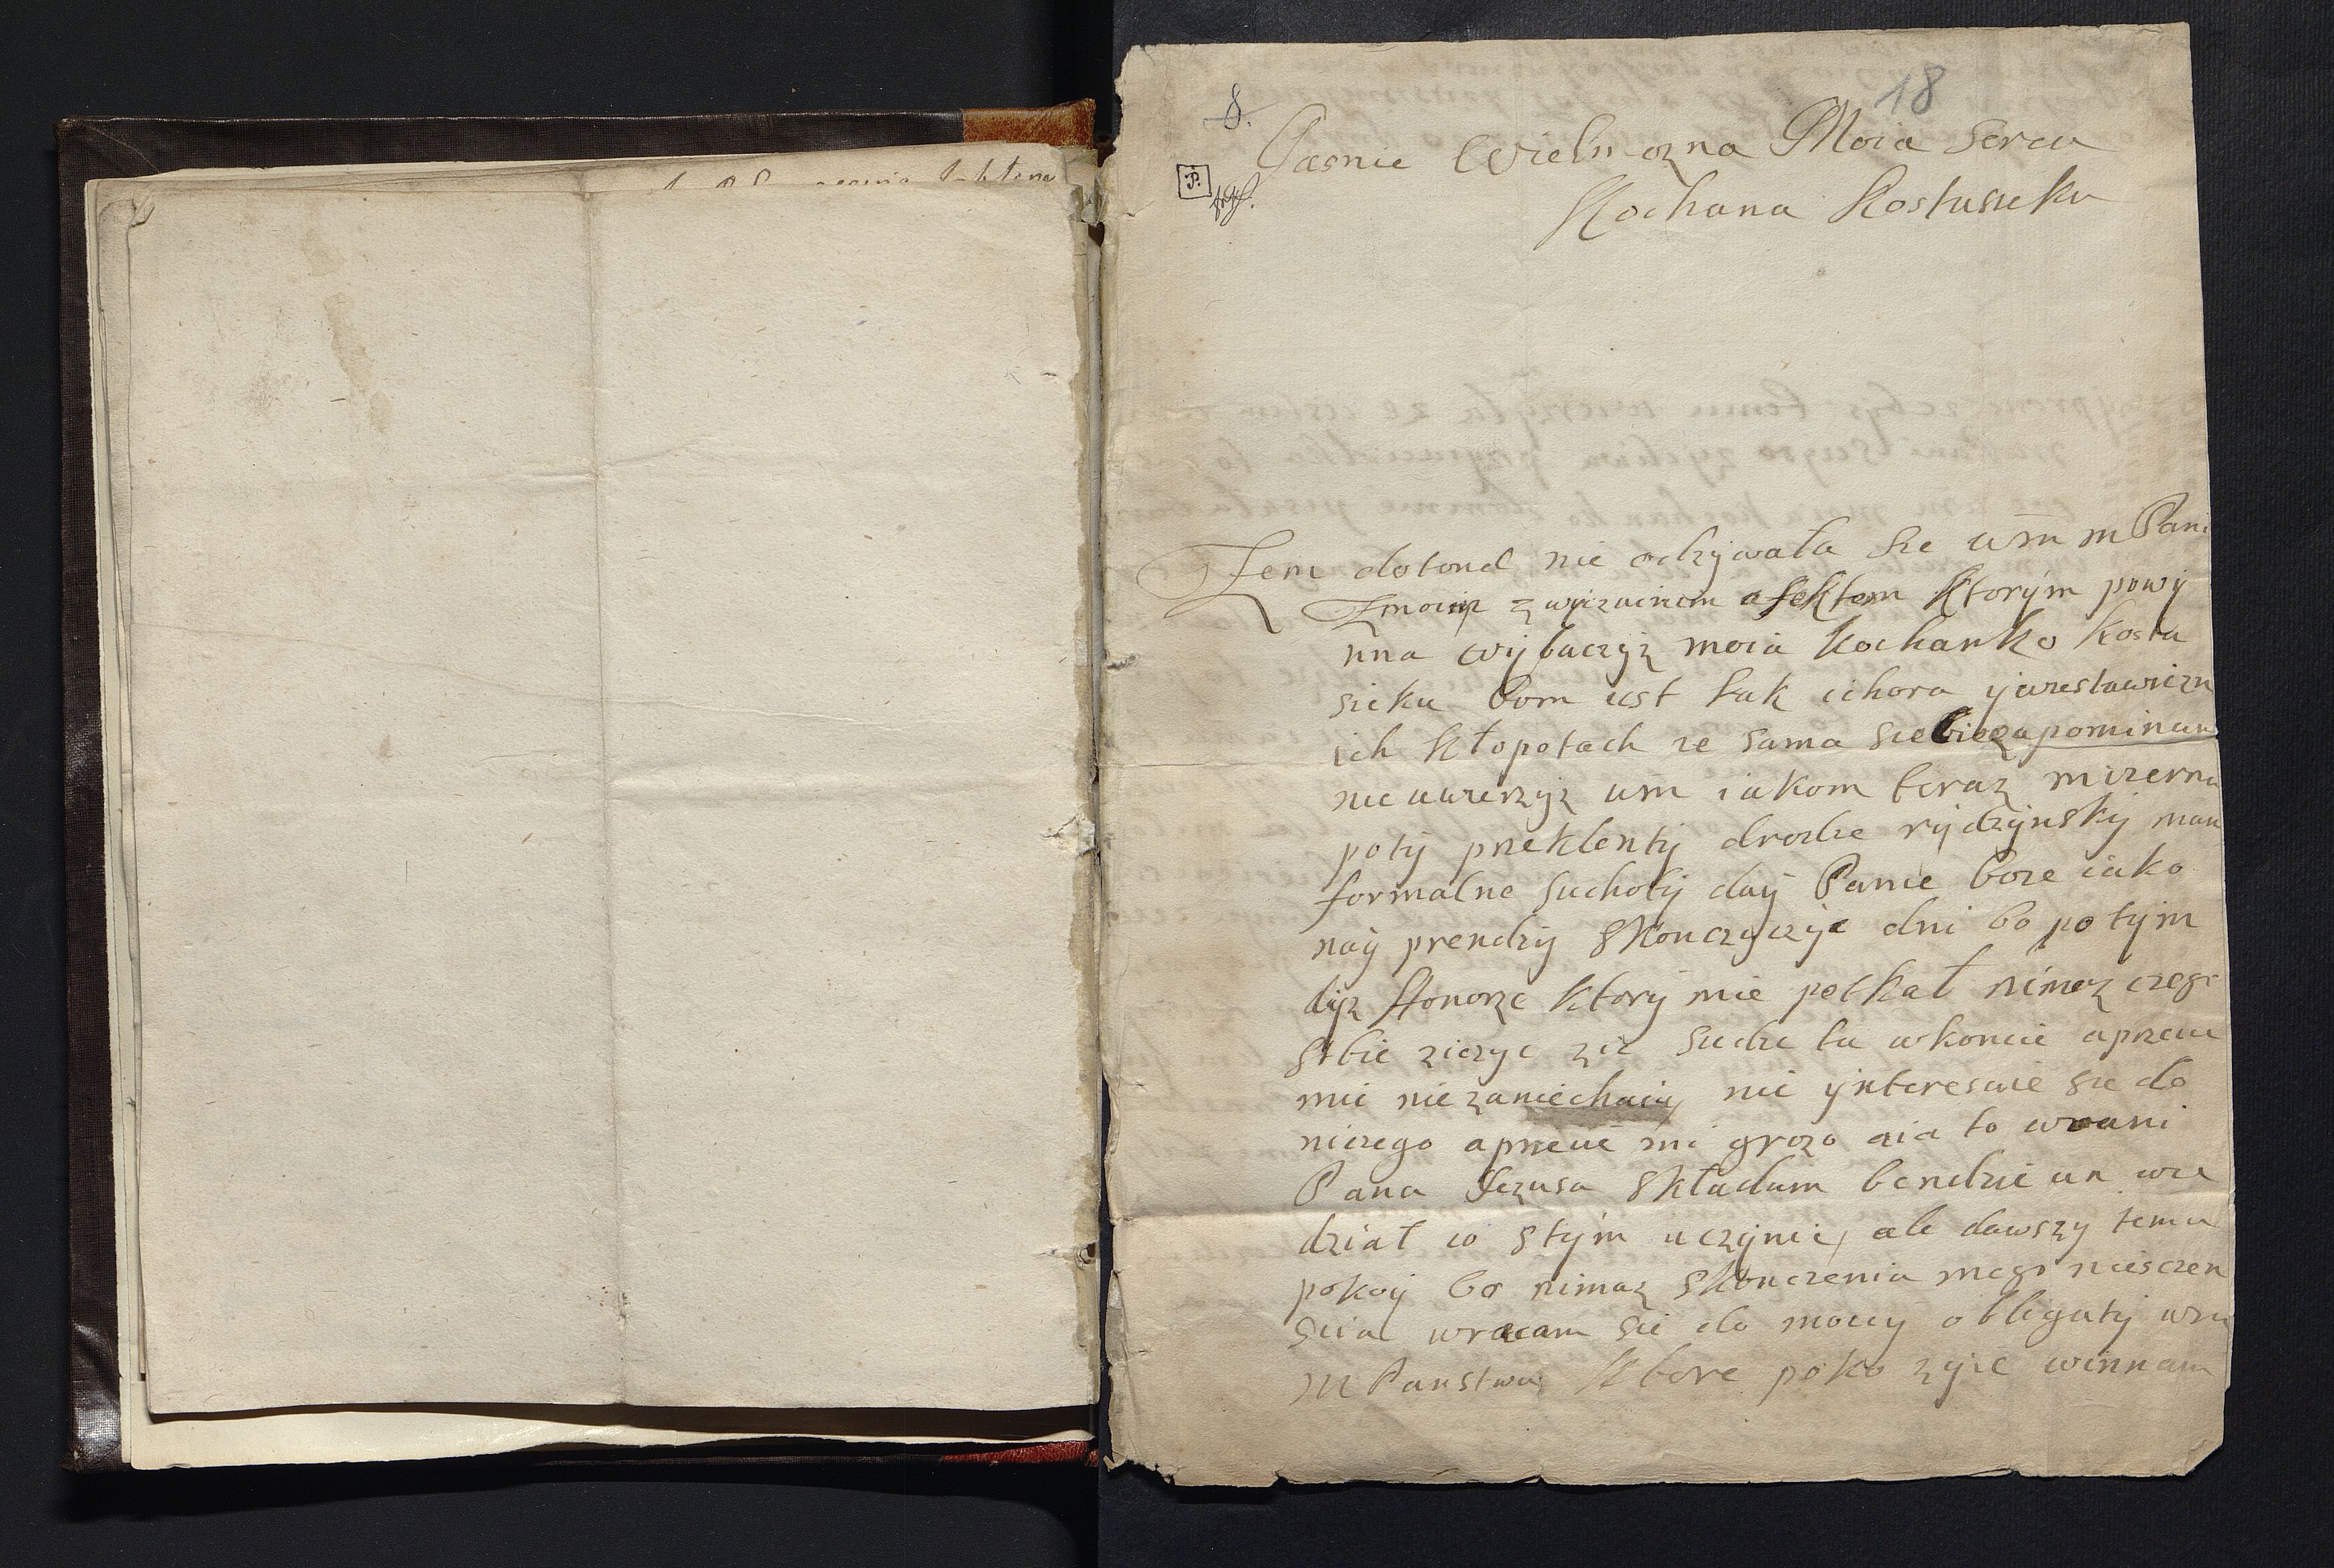 18
8.
Jasnie Wielmozna Moia sercu
Kochana Kostusieku
P.
Zem dotond nie odzywała sie wm m Pani
zmoiy zwyczainem afektem ktorým powy
nna wybaczyz moia kochanko kostu
sieku bom iest tak chora y wustawiczn
ich kłopotach ze sama siebie zapominam
nie uwierzyz wm iakom teraz mizerna
poty preklenty drodze rydzynsky mam
formalne suchoty day Panie boze iako
nay prendzy skonczyczye dni bo po tym
dyz Honorze ktory mie potkał nimaz czego
sobie ziczyc ze siedze tu wkoncie aprzecie
mie niezaniechaiu nie ynteresuie sie do
niczego aprzecie mi grozo aia to wrani
Pana Jezusa składam bendzie un wie
dział co stym uczynic, ale dawszy temu
pokoy bo nimaz skonczenia mego niesczen
scia wracam sie do mouy obligaty wm
m Panstwu ktore poko zyie winnam